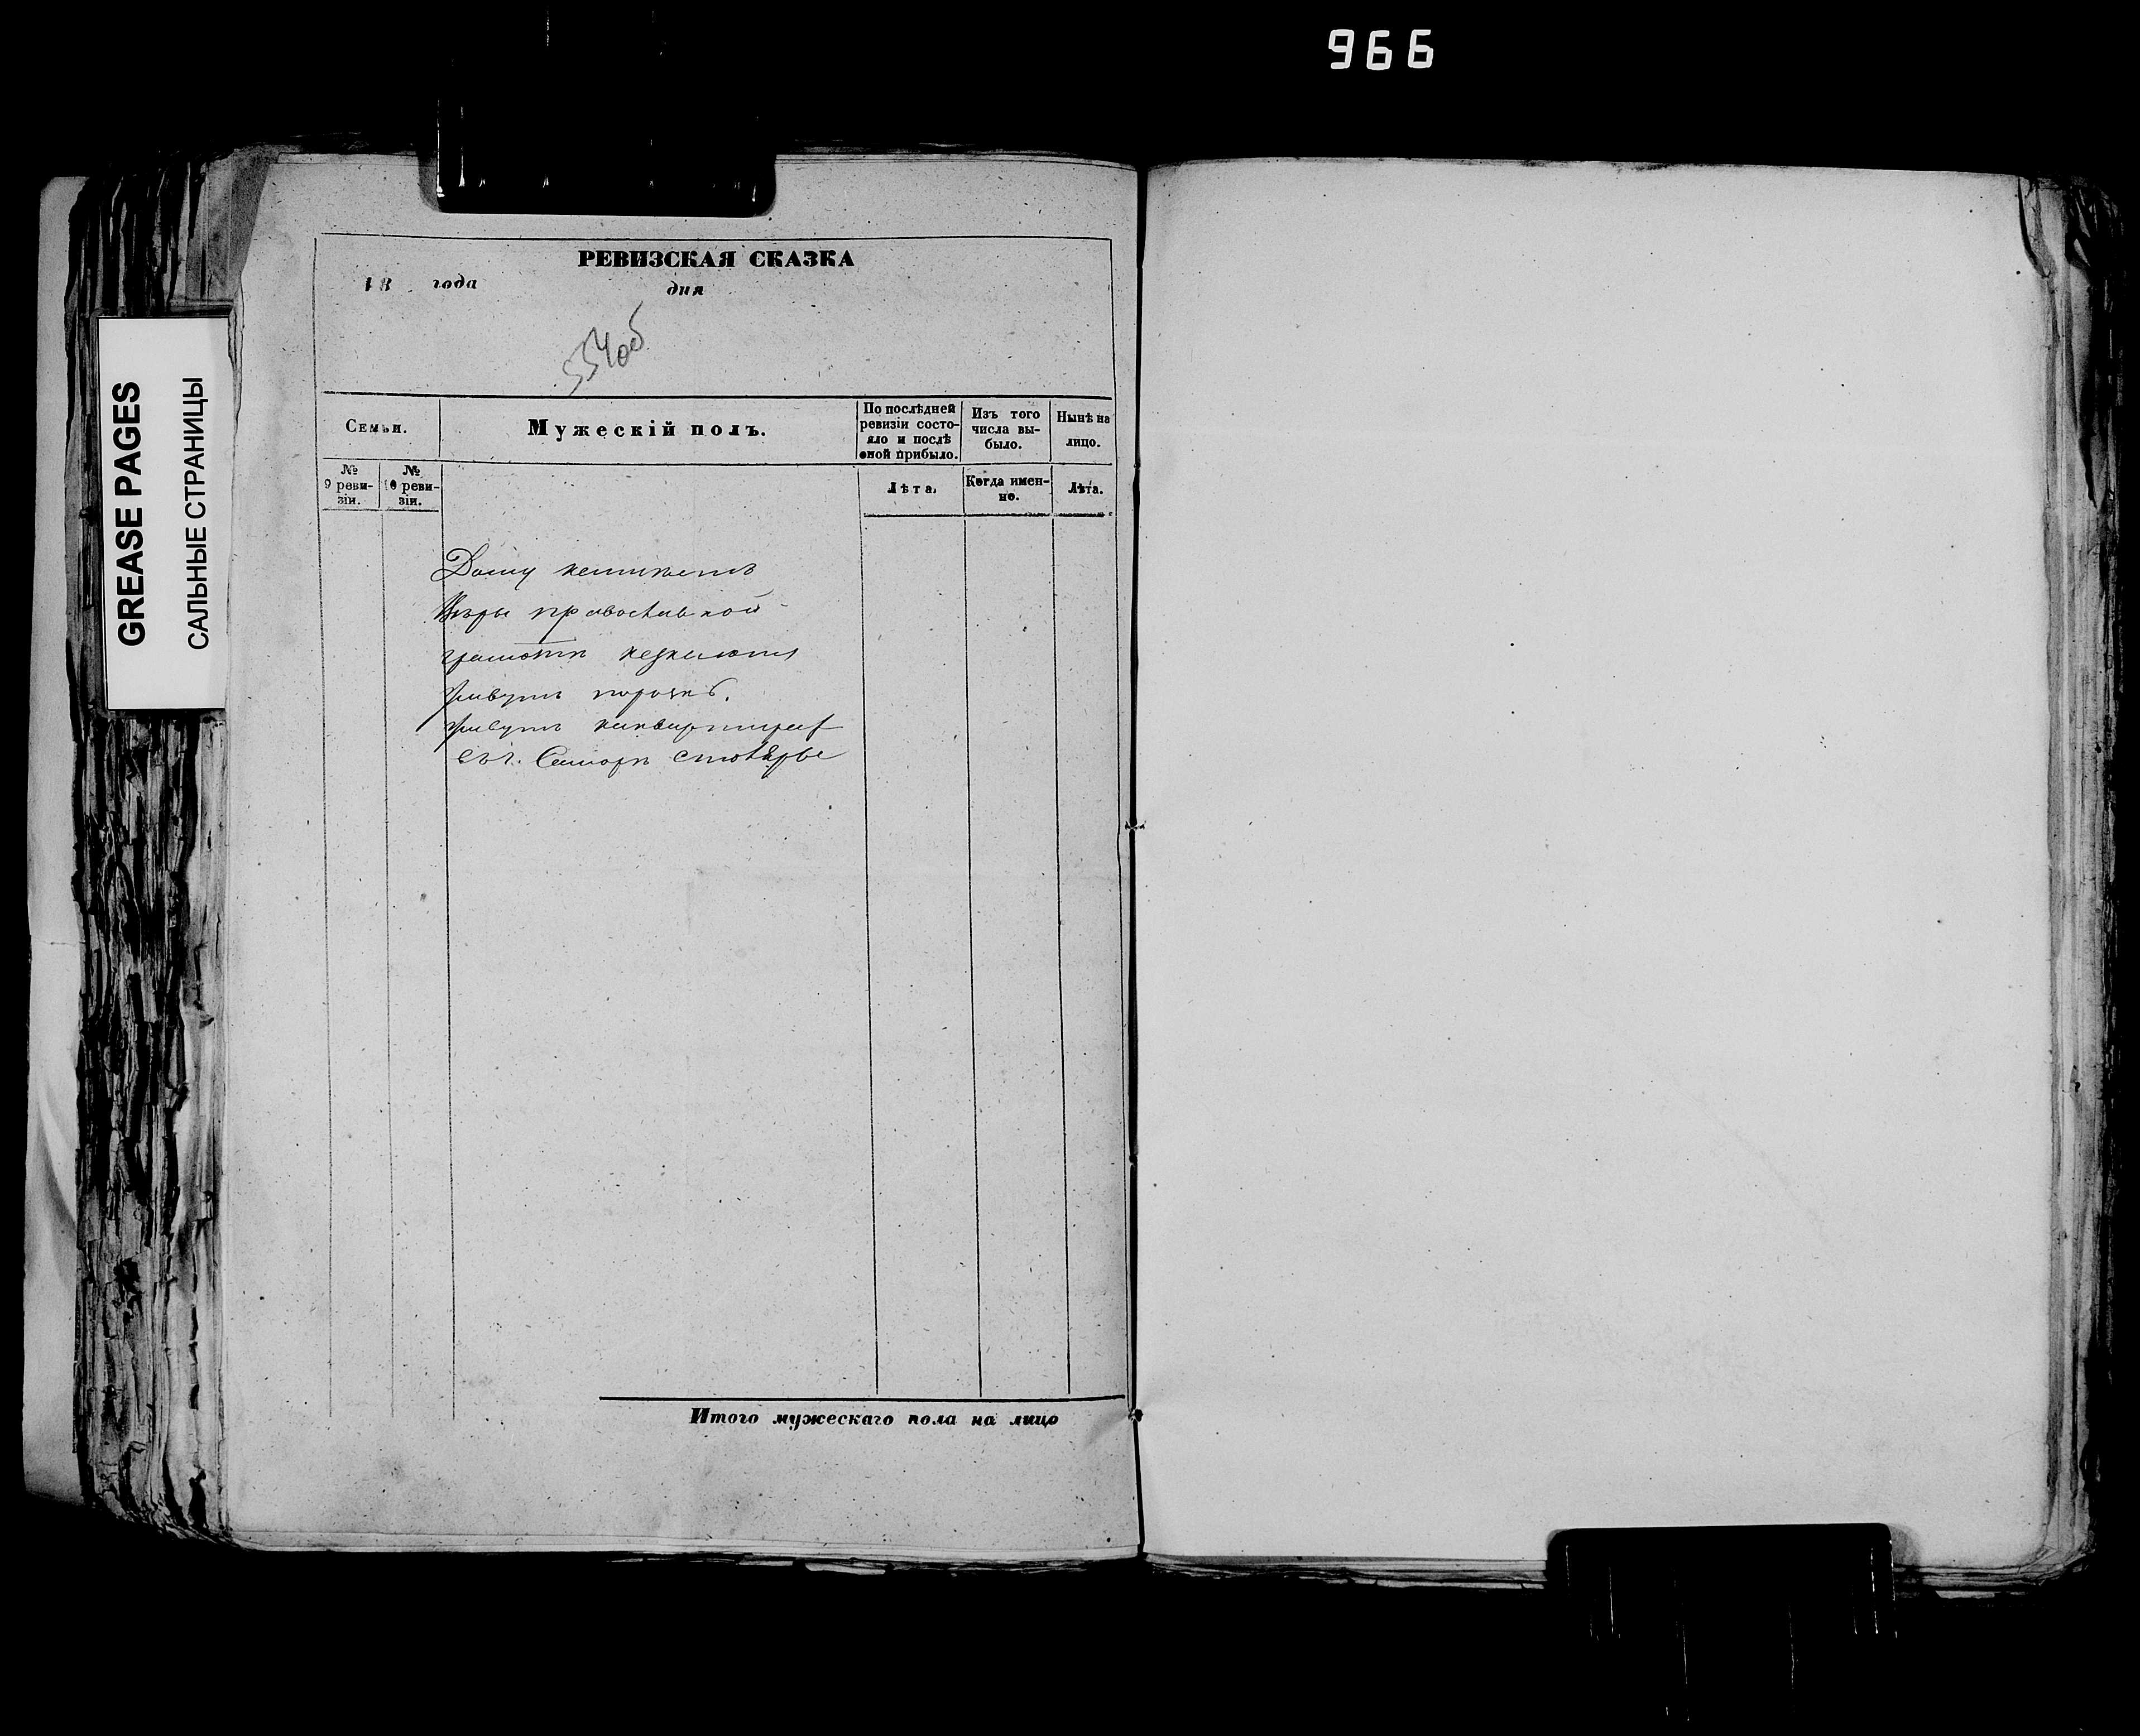 966
GREASE PAGES
САЛЬНЫЕ СТРАНИЦЫ
РЕВИЗСКАЯ СКАЗКА
18 года дня
554об
Семьи.
Мужескій полъ.
По послѣдней ревизіи состояло и послѣ оной прибыло.
Изъ того числа выбыло.
Нынѣ на лицо.
№ 9 ревизіи.
№ 10 ревизіи.
Лѣта.
Когда именно.
Лѣта.
Дому неимѣетъ
Вѣры православной
грамотѣ незнаютъ
живутъ порознь.
живутъ
въ г. Самарѣ
Итого мужескаго пола на лицо